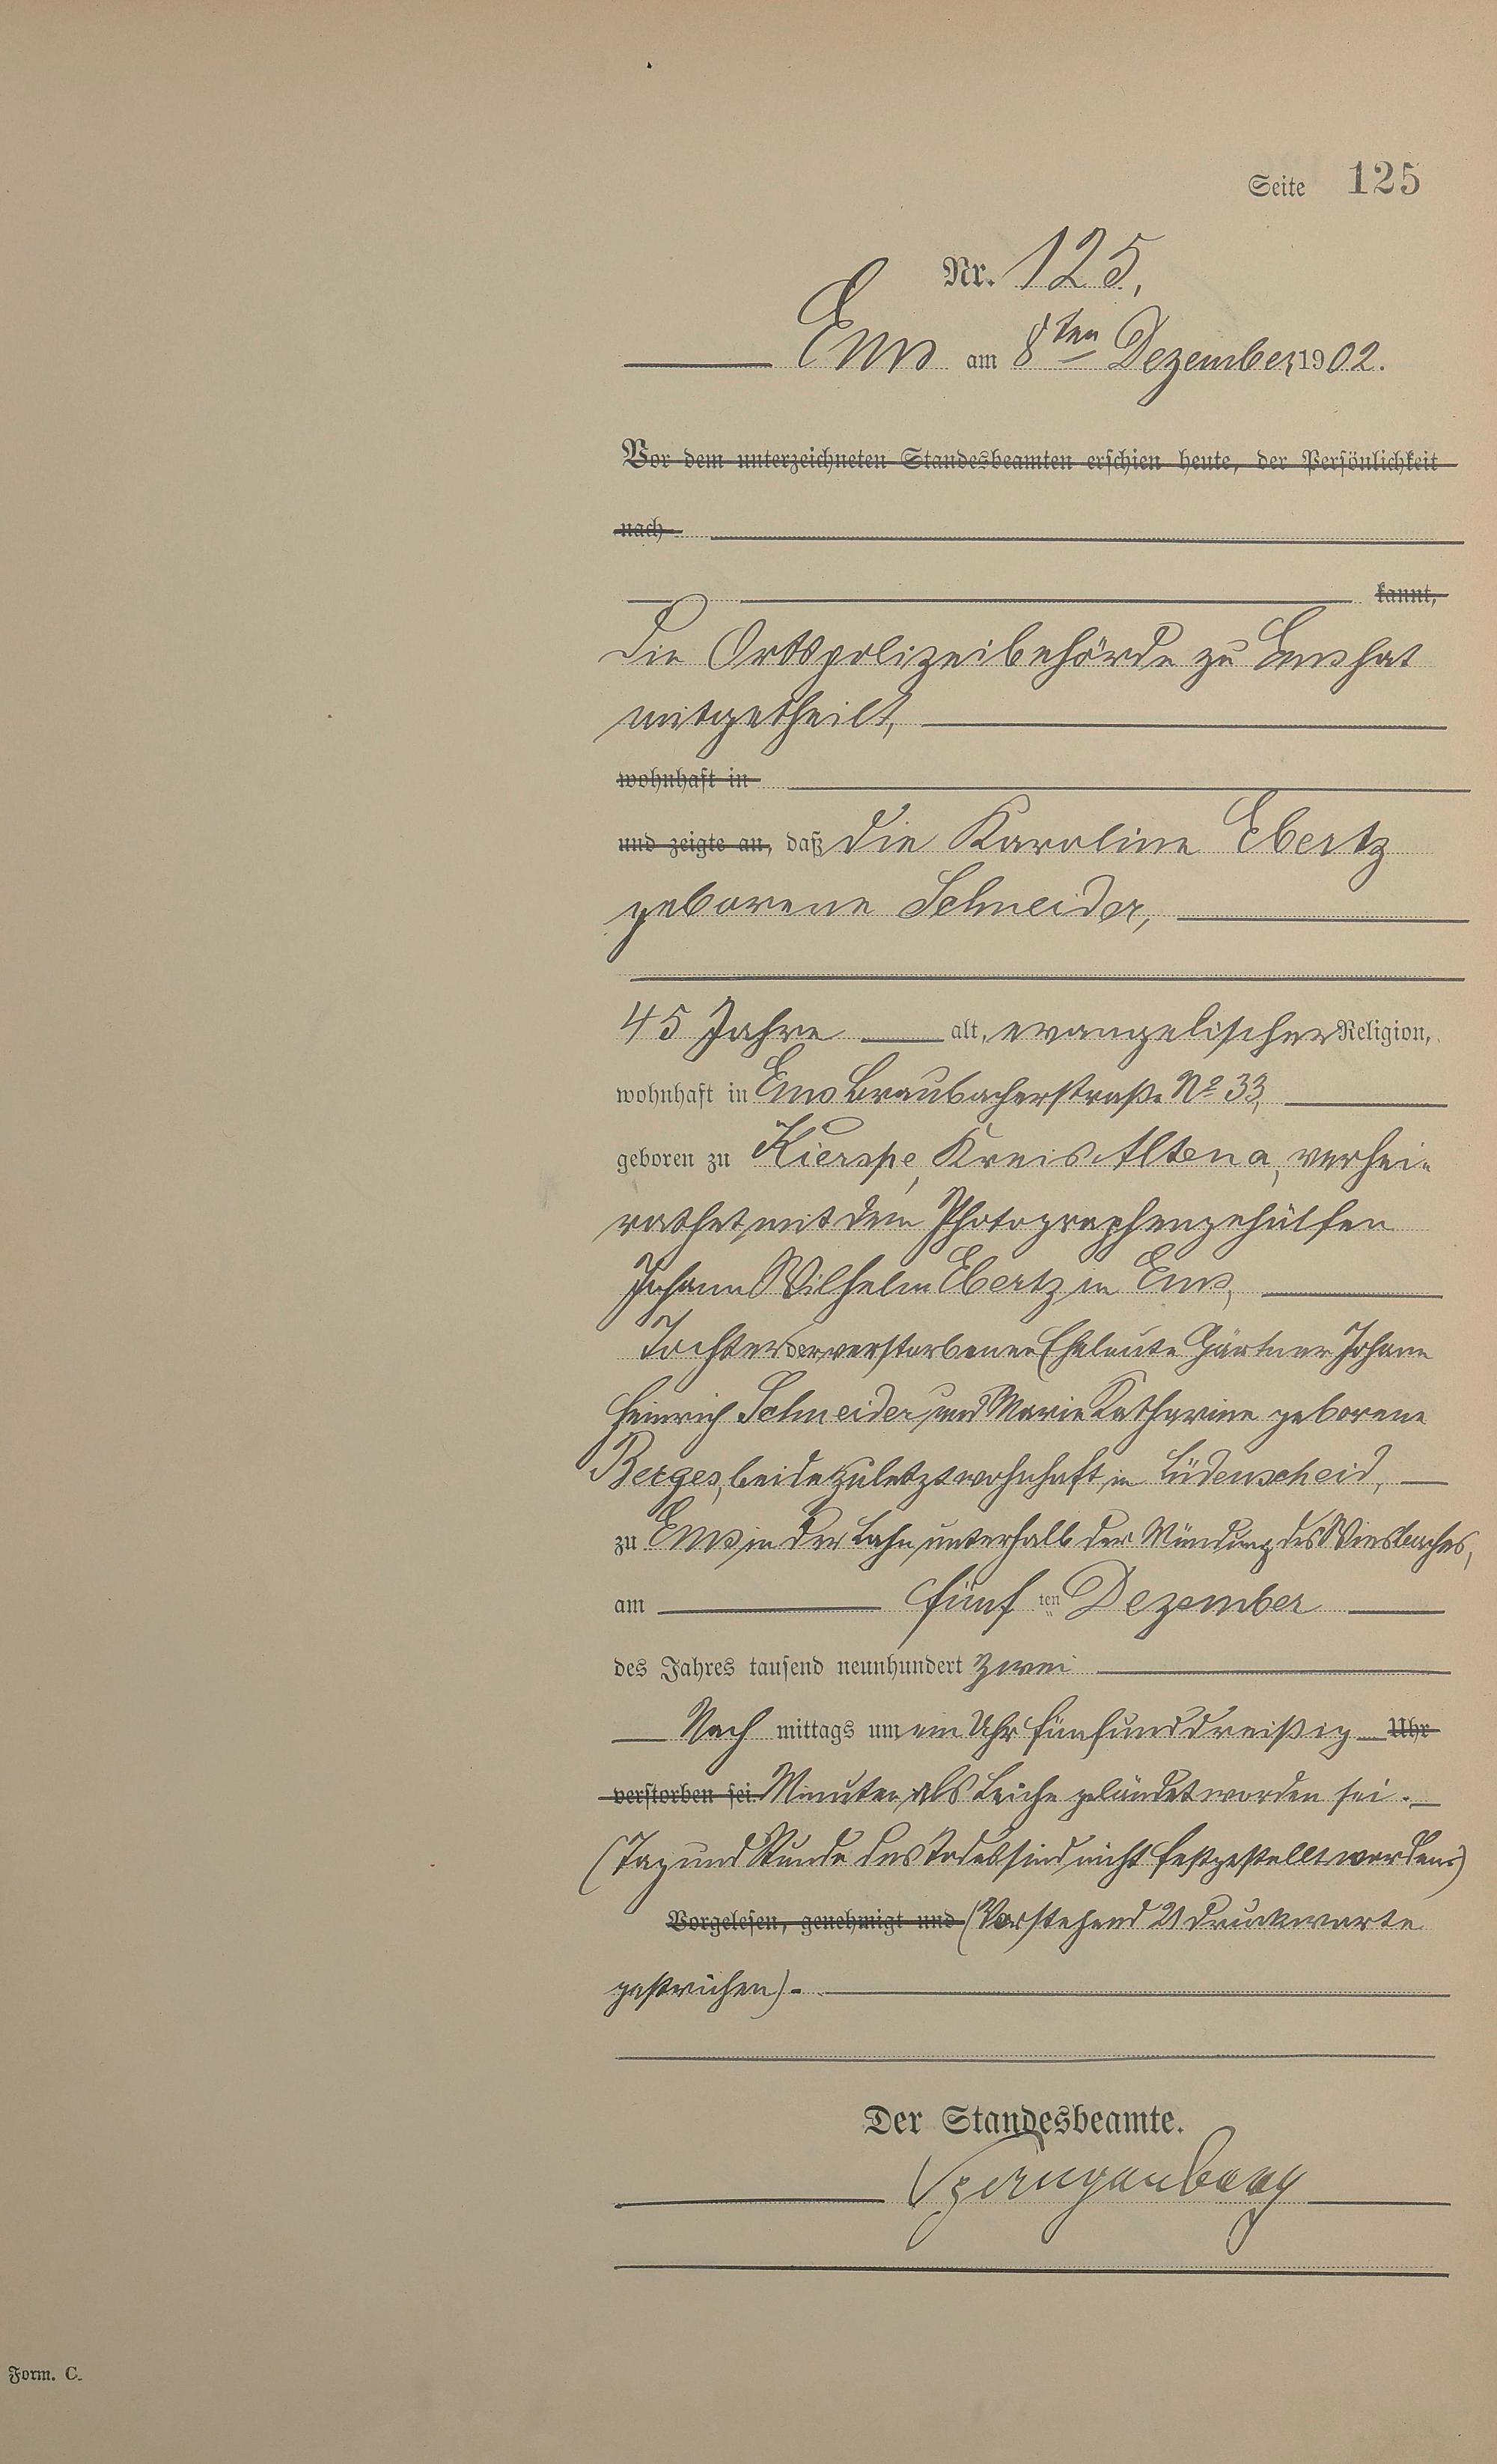 Seite 125
Nr. 125,
Ems am 8ten Dezember 1902.
Vor dem unterzeichneten Standesbeamten erschien heute, der Persönlichkeit
nach
kannt,
die Ortspolizeibehörde zu Ems hat
mitgetheilt,
wohnhaft in
und zeigte an, daß die Karoline Ebertz
geborene Schneider,
45 Jahre alt, evangelischer Religion,
wohnhaft in Ems Braubacherstraße No 33,
geboren zu Kierspe, Kreis Altena, verhei-
rathet mit dem Photographengehülfen
Johann Wilhelm Ebertz in Ems,
Tochter der verstorbenen Eheleute Gärtner Johann
Heinrich Schneider und Marie Katharine geborene
Berges, beide zuletzt wohnhaft in Lüdenscheid,
zu Ems in der Lahn, unterhalb der Mündung des Wiesbaches,
am fünf ten Dezember
des Jahres tausend neunhundert zwei
Nach mittags um ein Uhr fünfunddreißig Uhr
verstorben sei. Minuten als Leiche geländet worden sei.
(Tag und Stunde des Todes sind nicht festgestellt worden.)
Vorgelesen, genehmigt und (Vorstehend 21 Druckworte
gestrichen).
Der Standesbeamte.
Form. C.